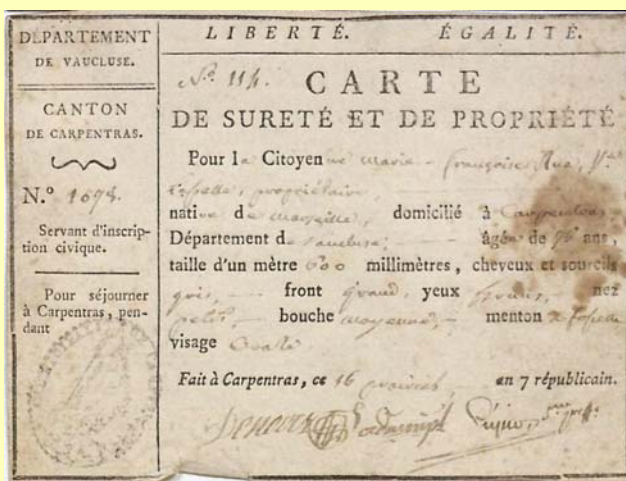 DEPARTEMENT
DE VAUCLUSE.
CANTON
DE CARPENTRAS.
N.º 1698.
Servant d'inscrip-
tion civique.
Pour séjourner
à Carpentras, pen-
dant
LIBERTÉ. ÉGALITÉ.
Nº. 114.
CARTE
DE SURETÉ ET DE PROPRIÉTÉ
Pour la Citoyenne marie-françoise
propriétaire,
native de marseille, domicilié à Carpentras
Département de vaucluse, âgée de ans,
taille d'un mètre 600 millimètres, cheveux et sourcils
gris, front grand, yeux nez
petit, bouche moyenne, menton
visage ovale
Fait à Carpentras, ce 16 prairial an 7 républicain.